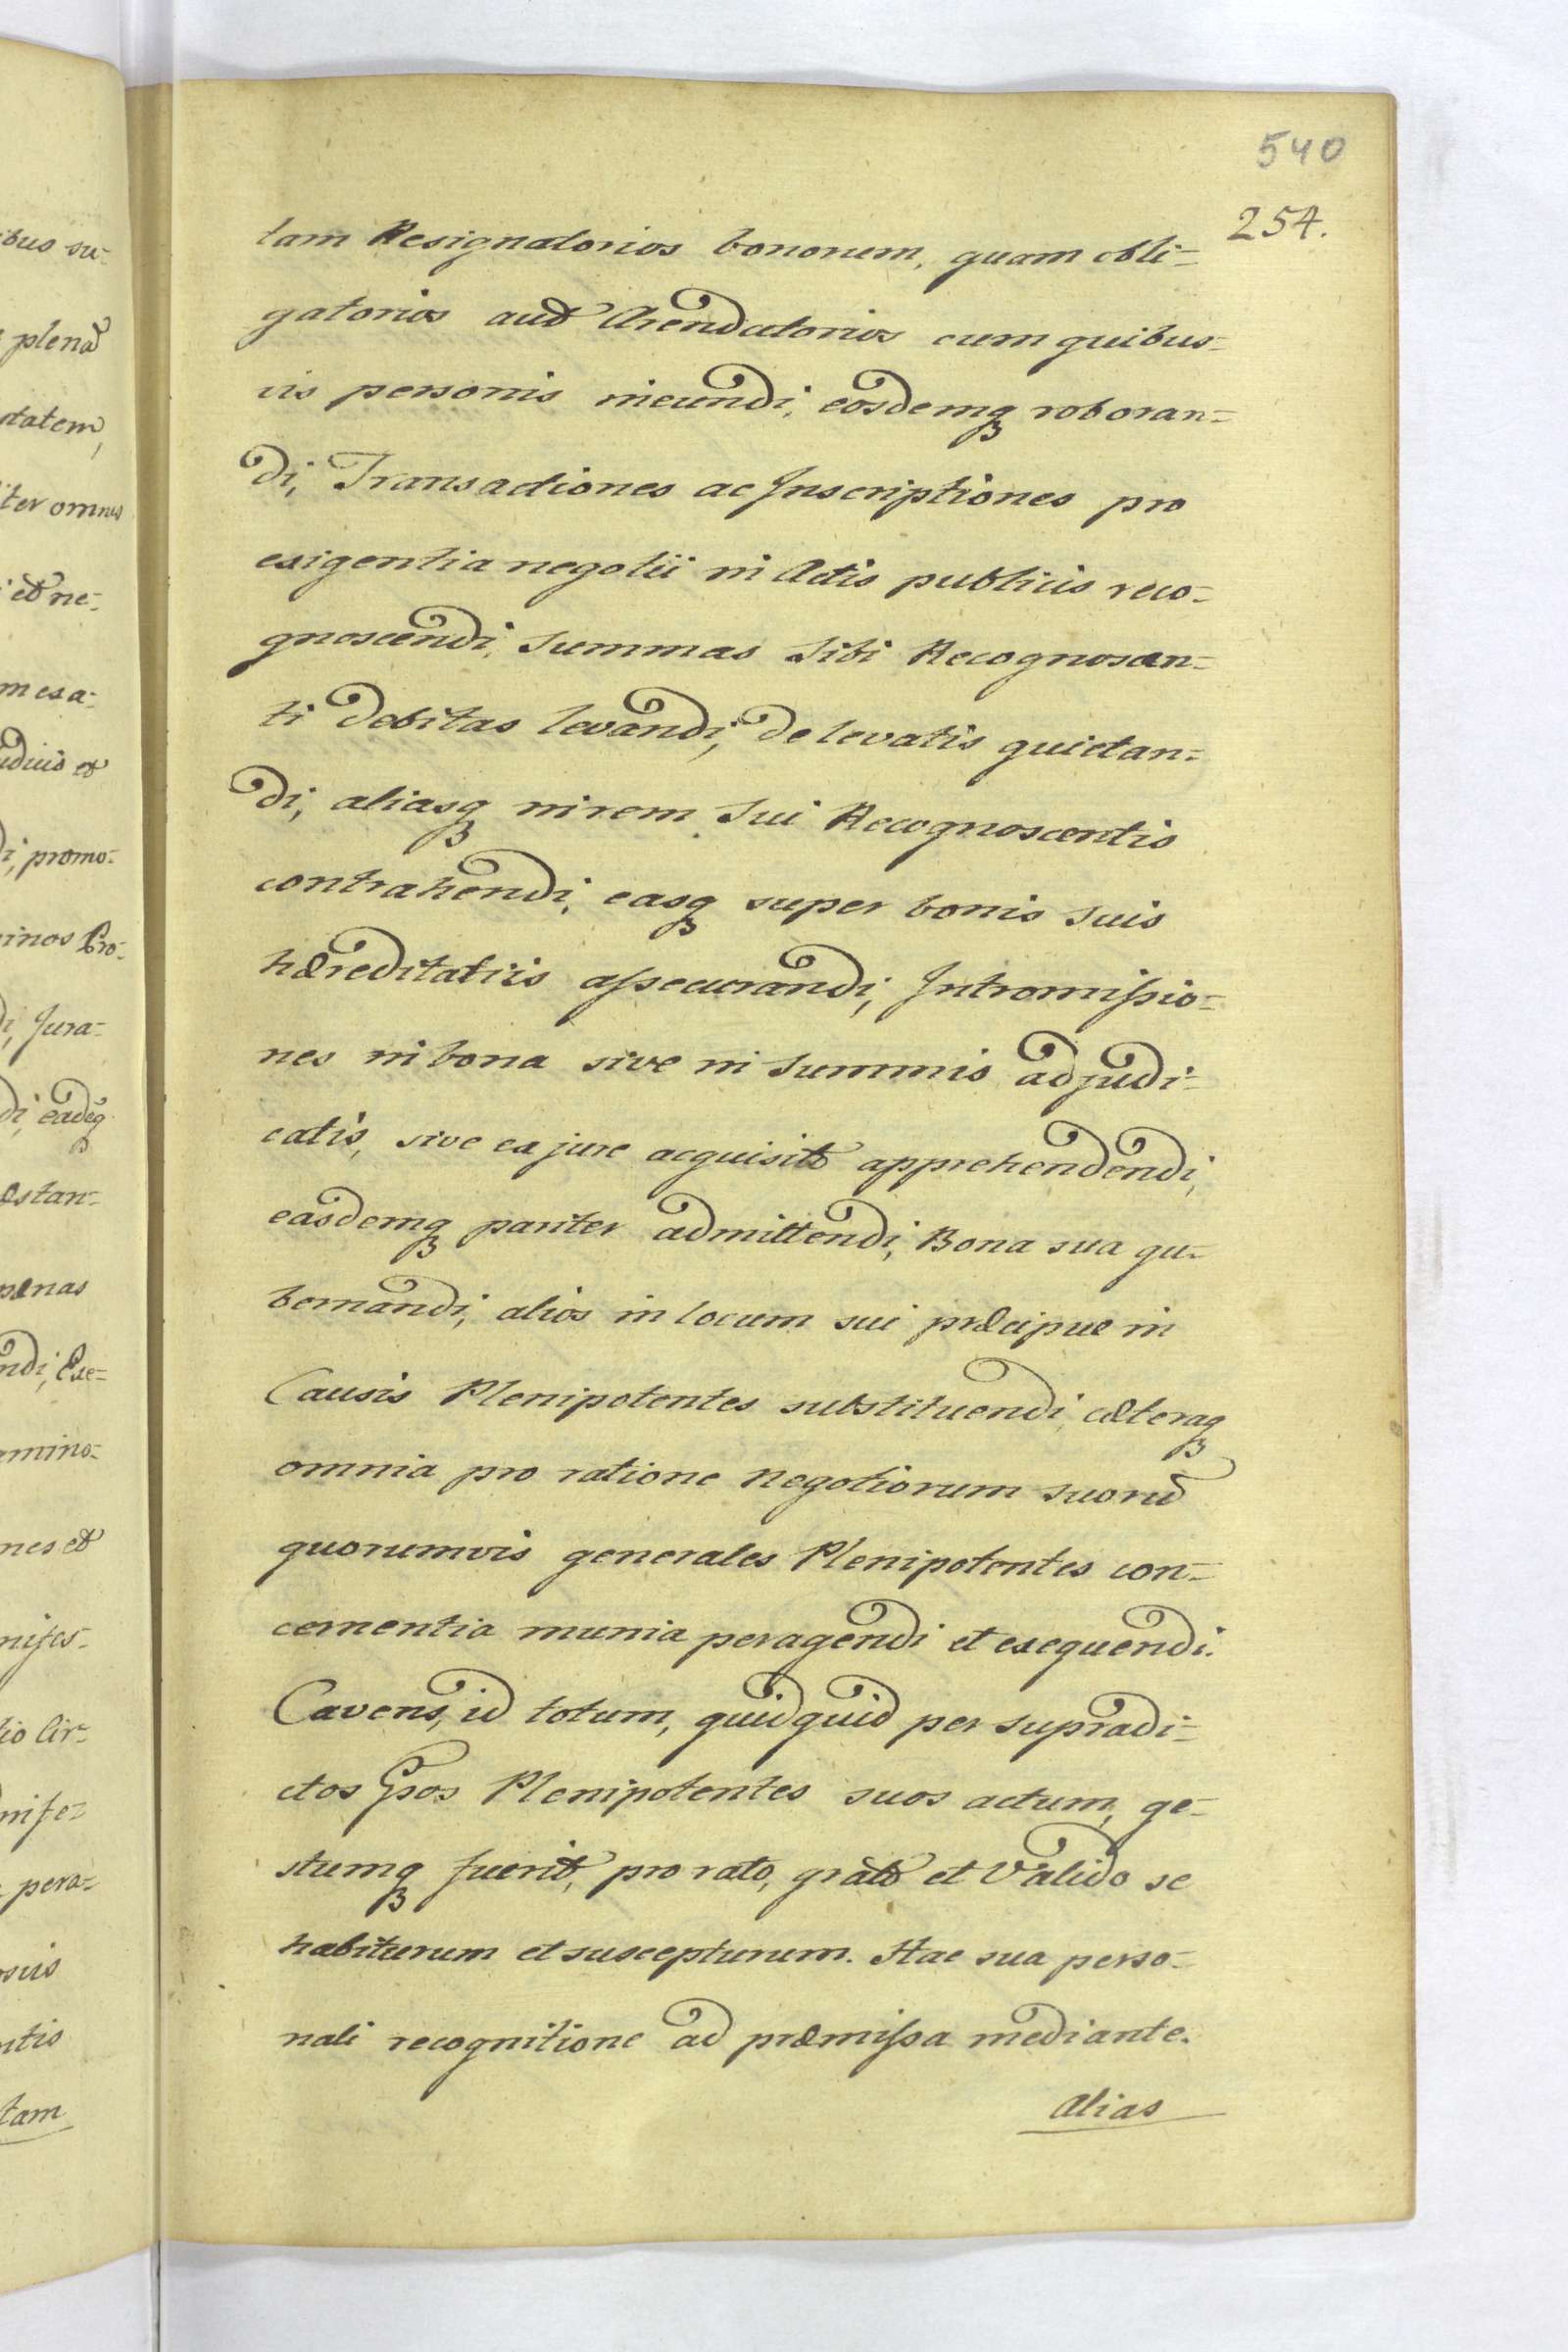 540
254.
tam Resignatorios bonorum, quam obli-
gatorios aut Arendatorios cum quibus-
vis personis ineundi, eosdemq3 roboran-
di, Transactiones ac Inscriptiones pro
exigentia negotii in Actis publicis reco-
gnoscendi, summas sibi Recognoscen-
ti debitas levandi, de levatis quietan-
di, aliasq3 in rem sui Recognoscentis
contrahendi, easq3 super bonis suis
hæreditariis assecurandi, Intromissio-
nes in bona sive in summis adjudi-
catis, sive ex jure acquisito apprehendendi,
easdemq3 pariter admittendi, Bona sua gu-
bernandi, alios in locum sui præcipue in
Causis Plenipotentes substituendi, cæteraq3
omnia pro ratione negotiorum suorũ
quorumvis generales Plenipotentes con-
cernentia munia peragendi et exequendi.
Cavens, id totum, quidquid per supradi-
ctos Gsos Plenipotentes suos actum, ge-
stumq3 fuerit, pro rato, grato et Valido se
habiturum et suscepturum. Hac sua perso-
nali recognitione ad præmissa mediante.
Alias
ibus su-
plenã
tatem,
iter omnes
et ne-
m exa-
udiciis et
di, promo-
minos Pro-
di, Jura-
di, eadẽq3
æstan-
pænas
ndi, Exe-
omino-
nes et
nifes-
io Cir-
nifes-
pera-
osiis
ntis
tam